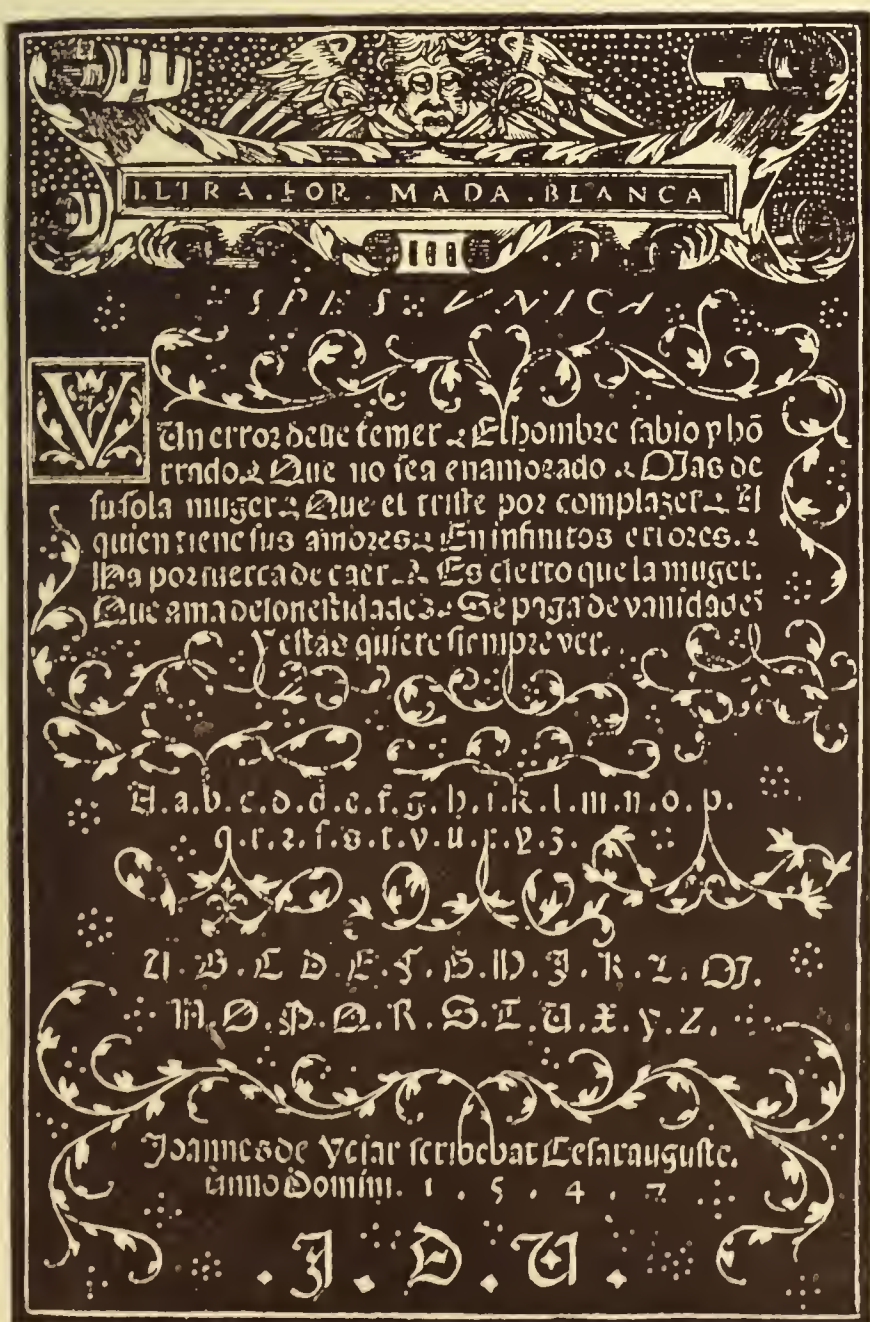 .LETRA.FOR.MADA.BLANCA
SPES VNICA
V
Un error deue temer. El hombre sabio y hō
rrado. Que no sea enamorado. Mas de
su sola muger. Que el triste por complazer. A
quien tiene sus amores. En infinitos errores.
Ha por fuerca de caer. Es cierto que la muger.
Que ama desonestidades. Se paga de vanidades
Y estas quiere siempre ver.
A.a.b.c.d.d.e.f.g.h.i.k.l.m.n.o.p.
q.r.r.s.s.t.v.u.x.y.z.
A.B.C.D.E.F.G.H.I.K.L.M.
N.O.P.Q.R.S.T.U.X.Y.Z.
Joannes de Yciar scribebat Cesarauguste.
anno Domini. 1.5.4.7
.J.D.U.